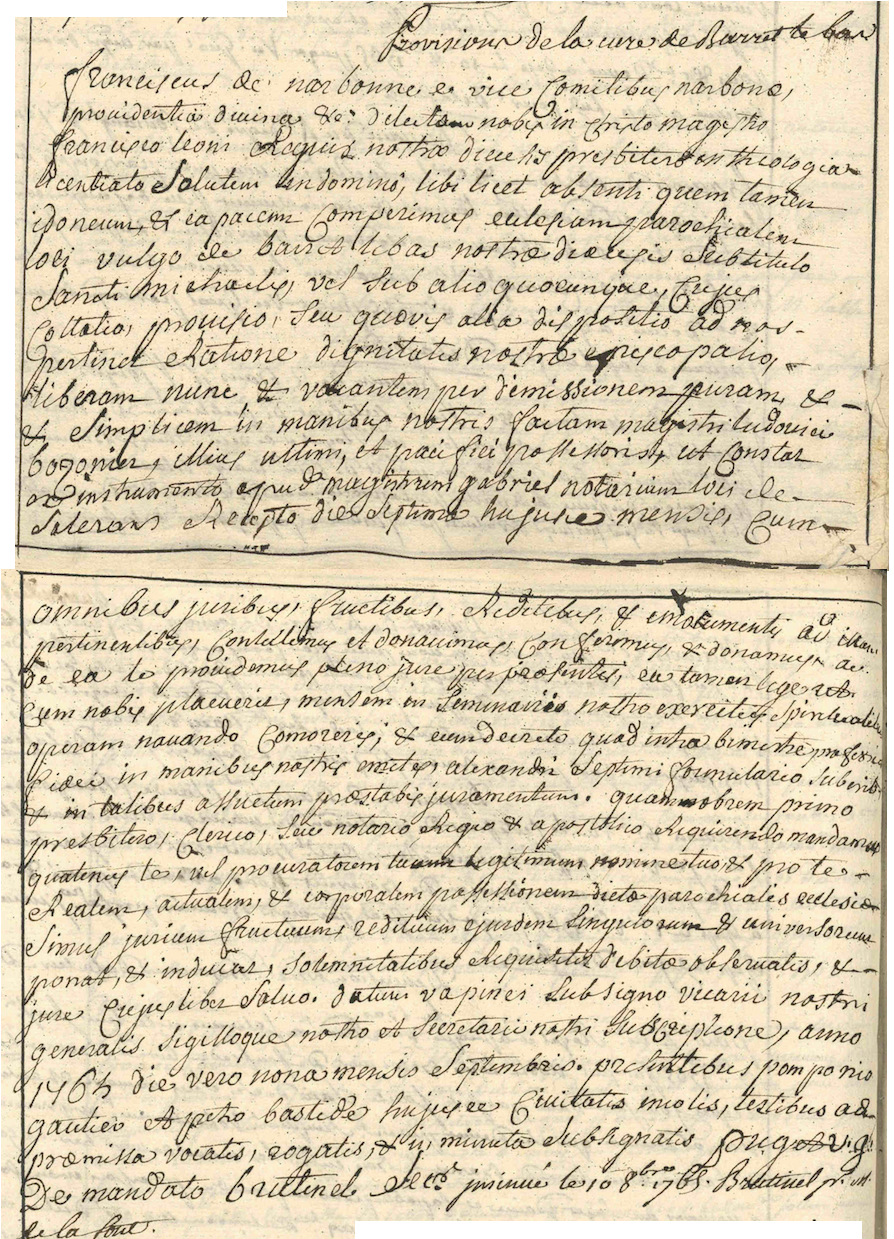 Provisions de la cure de Barret le bas
franciscus de narbonne e vice Comitibus narbonæ,
providentia divina &c. dilecto nobis in Christo magistro
francisco leoni nostræ diecesis presbitero in theologia
licentiato Salutem in domino, tibi licet absenti quem tamen
idoneum, & capacem Comperimus eclesiam parochialem
loci vulgo de barret lebas nostræ diœcesis Subtitulo
Sancti michaelis, vel Sub alio quocunque, Cujus
Collatio, provisio, seu quævis alia dispositio ad nos
pertinet Ratione dignitatis nostræ episcopalis,
liberam nunc & vacantem per demissionem puram, &
& Simplicem in manibus nostris factam magistri ludovici
illius ultimi, et pacifici possessoris, ut Constat
ex instrumento apud magistrum gabriel notarium loci de
Recepto die Septima hujusce mensis, Cum
omnibus juribus, fructibus, Reditibus, & emolumentis ad illam
pertinentibus, Contulimus et donavimus, Conferimus, & donamus ac
de ea te providemus pleno jure per præsentes, ea tamen lege ut
Cum nobis placueris, mensem in Seminario nostro exercitiis Spiritualibus
operam navando Comoreris, & eum decreto quod intra bimestre professionem
fidei in manibus nostris emittes, alexandri Septimi formulario Subscribes
& in talibus assuetum præstabis juramentum. quamobrem primo
presbitero, Clerico, seu notario Regio & apostolico Requirendo mandamus
quatenus te, vel procuratorem tuum legitimum nomine tuo, & pro te
Realem, actualem, & corporalem possessionem dictæ parochialis ecclesiæ
Simul jurium fructuum, redituum ejusdem Singulorum & universorum
ponat, & inducat, solemnitatibus Requisitis debitæ observatis, &
jure Cujuslibet Salvo. datum vapinci Sub Signo vicarii nostri
generalis Sigilloque nostro et Secretarii nostri Subscriptione, anno
1765 die vero nona mensis Septembris. presentibus pomponio
gautier et petro bastide hujusce Civitatis incolis, testibus ad
præmissa vocatis, rogatis, & in minuta Subsignatis puget v. g.
De mandato brutinel Secr. insinué le 10 8bre 1765. Brutinel
de la font.